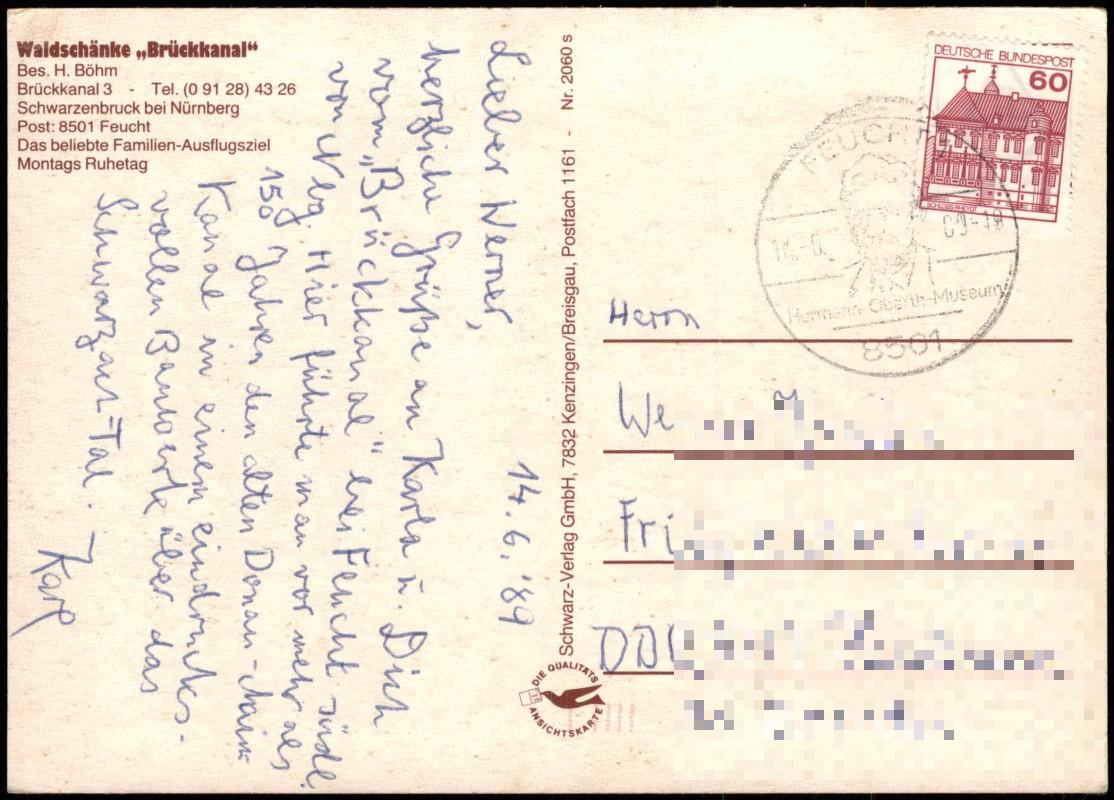 Waldschänke „Brückkanal“
Bes. H. Böhm
Brückkanal 3 - Tel. (0 91 28) 43 26
Schwarzenbruck bei Nürnberg
Post: 8501 Feucht
Das beliebte Familien-Ausflugsziel
Montags Ruhetag
14.6.'89
Lieber Werner,
herzliche Grüße an Karla u. Dich
vom „Brückkanal“ bei Feucht südl.
von Nbg. Hier führte man vor mehr als
150 Jahren den alten Donau-Main
Kanal in einem eindrucks-
vollen Bauwerk über das
Schwarzach-Tal.
Karl
Schwarz-Verlag GmbH, 7832 Kenzingen/Breisgau, Postfach 1161 - Nr. 2060 s
DIE QUALITÄTS
ANSICHTSKARTE
DEUTSCHE BUNDESPOST
60
SCHLOSS RHEYDT
FEUCHT
Hermann-Oberth-Museum
8501
Herrn
We
Fri
DD